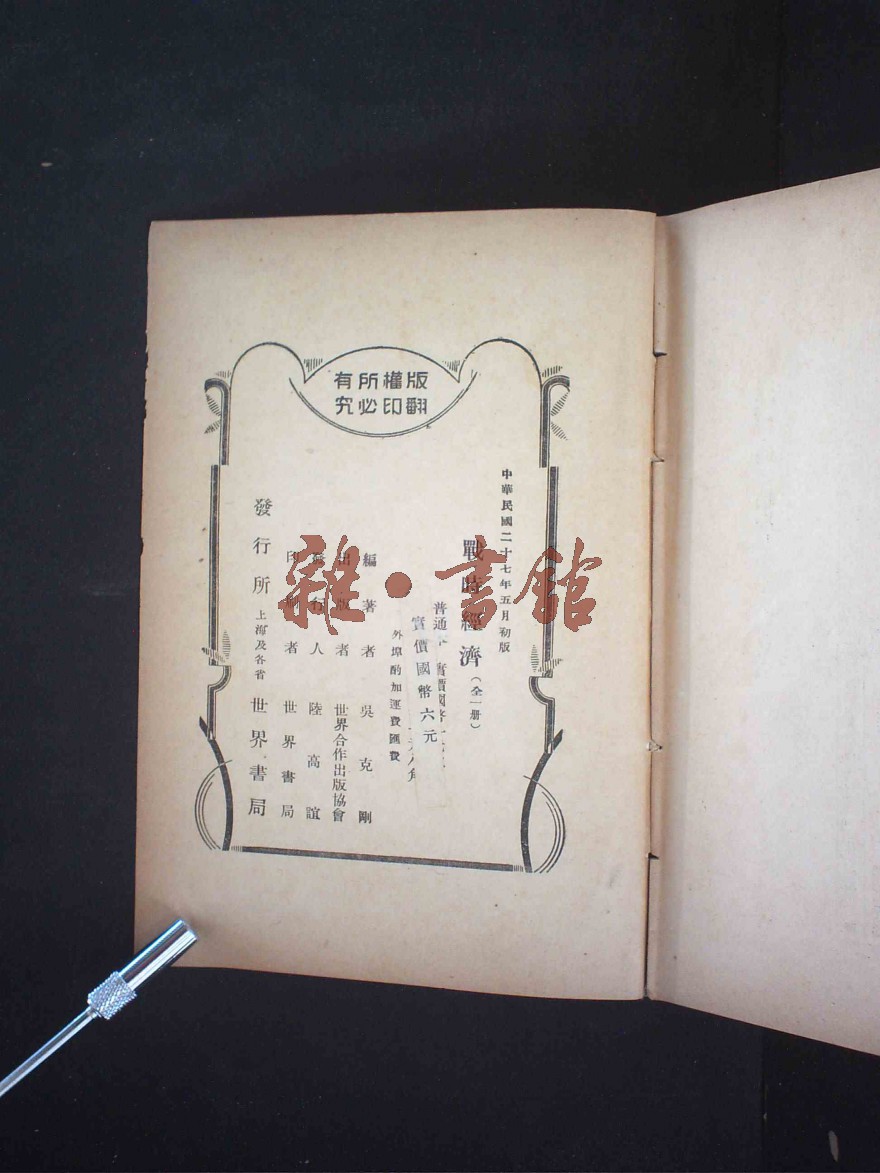 版權所有
翻印必究
中華民國二十七年五月初版
戰時經濟(全一册)
普通 實價國幣
實價國幣六元
外埠酌加運費匯費
編著者 吳克剛
出版者 世界合作出版協會
發行人 陸高誼
印刷者 世界書局
發行所 上海及各省 世界書局
雜·書館